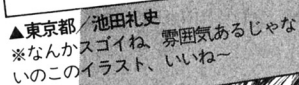 ▲東京都／池田礼史
※なんかスゴイね、雰囲気あるじゃな
いのこのイラスト、いいね〜